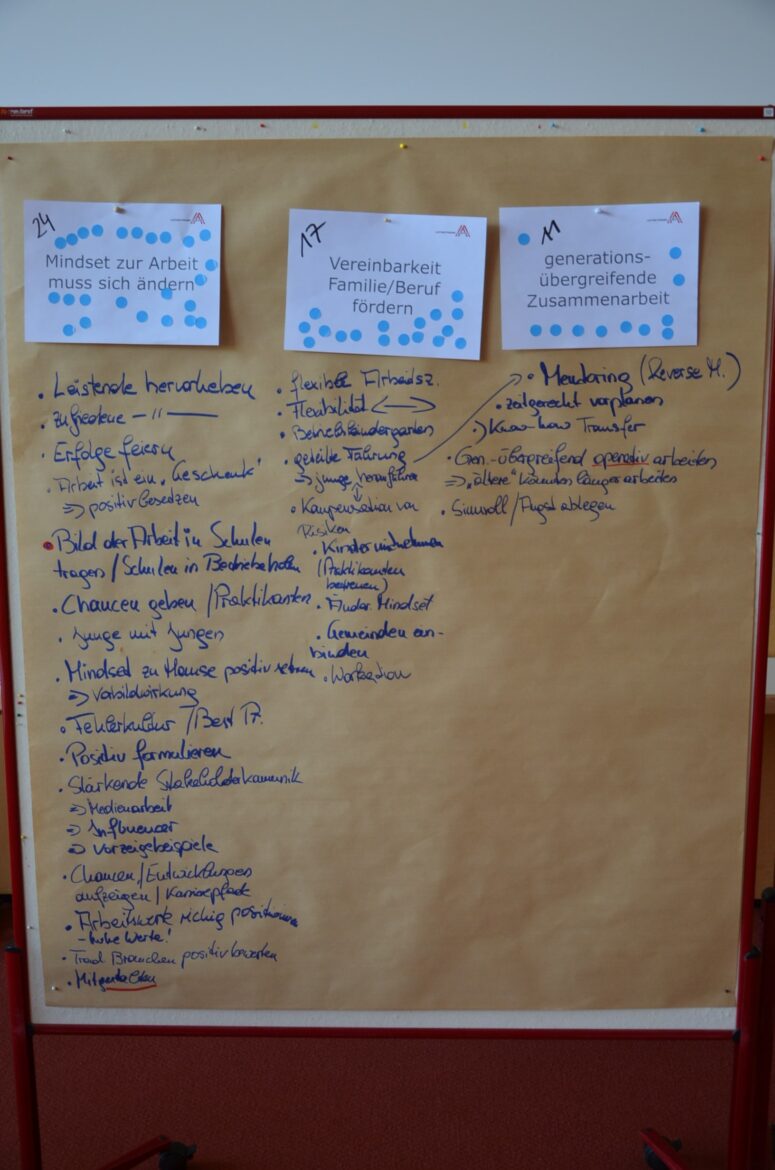 24
Mindset zur Arbeit
muss sich ändern
• Leistende hervorheben
• Zufriedene — 〃 —
• Erfolge feiern
• Arbeit ist ein „Geschenk“
⇒ positiv besetzen
• Bild der Arbeit in Schulen
tragen / Schulen in Betriebe holen
• Chancen geben / Praktikanten
• Junge mit Jungen
• Mindset zu Hause positiv setzen
⇒ Vorbildwirkung
• Fehlerkultur / Best P.
• Positiv formulieren
• Stärkende Stakeholderkommunik
⇒ Medienarbeit
⇒ Influencer
⇒ Vorzeigebeispiele
• Chancen / Entwicklungen
aufzeigen / Karrierepfade
• Arbeitswerte richtig positionieren
- hohe Werte!
• Trad Branchen positiv bewerten
• Mitgestalten
17
Vereinbarkeit
Familie/Beruf
fördern
• flexible Arbeitsz.
• Flexibilität ↔
• Betriebskindergarten
• geteilte Führung
⇒ junge heranführen
• Kompensation von
Risiken
• Kinder mitnehmen
(Praktikanten
betreuen)
• Änder. Mindset
• Gemeinden ein-
binden
• Workation
11
generations-
übergreifende
Zusammenarbeit
• Mentoring (Reverse M.)
• zeitgerecht vorplanen
•) Know-how Transfer
• Gen.-übergreifend operativ arbeiten
⇒ „ältere“ können länger arbeiten
• Sinnvoll / Angst ablegen